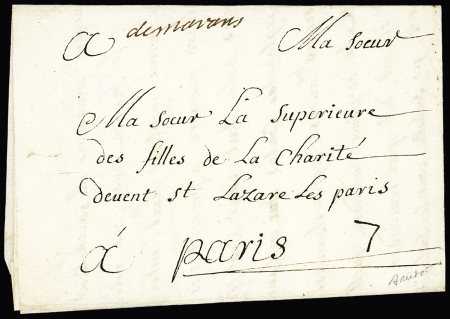 A demarans Ma soeur
Ma soeur La superieure
des filles de La Charité
devent st Lazare Les paris
á paris 7